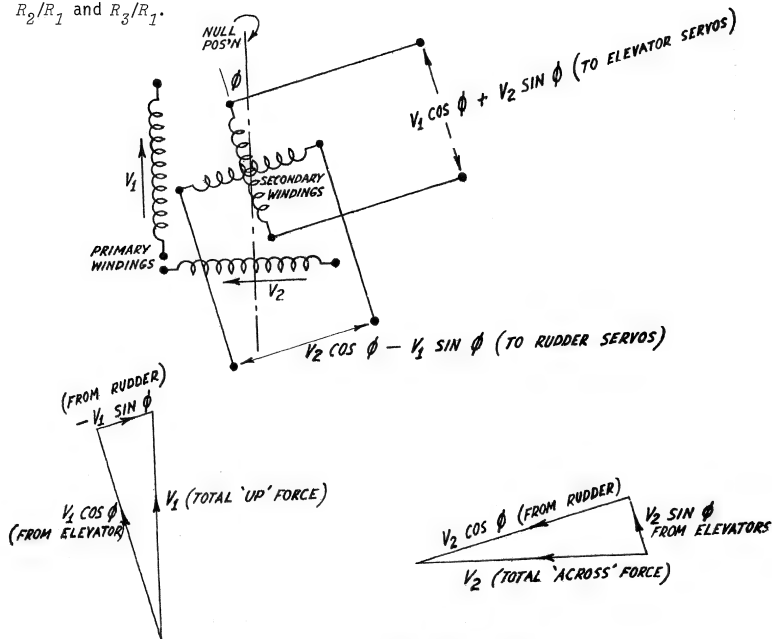 R₂/R₁ and R₃/R₁.
NULL
POS'N
ϕ
V₁ COS ϕ + V₂ SIN ϕ (TO ELEVATOR SERVOS)
V₁
SECONDARY
WINDINGS
PRIMARY
WINDINGS
V₂
V₂ COS ϕ – V₁ SIN ϕ (TO RUDDER SERVOS)
(FROM RUDDER)
– V₁ SIN ϕ
V₁ COS ϕ
(FROM ELEVATOR)
V₁ (TOTAL 'UP' FORCE)
V₂ COS ϕ (FROM RUDDER)
V₂ SIN ϕ
FROM ELEVATORS
V₂ (TOTAL 'ACROSS' FORCE)